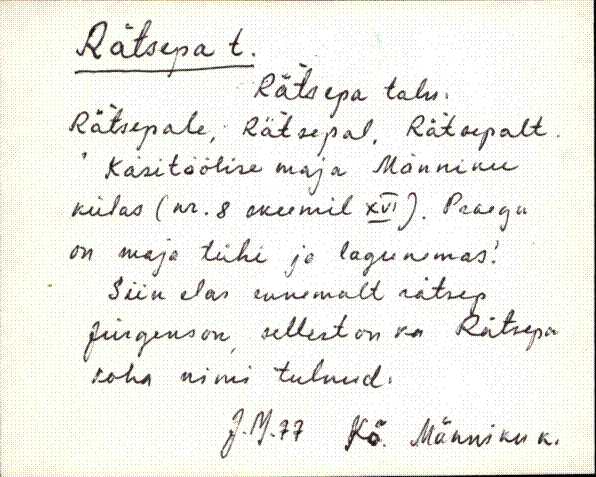 Rätsepa t.
Rätsepa talu.
Rätsepale, Rätsepal, Rätsepalt.
Käsitöölise maja Männiku
külas (nr. 8 skeemil XVI). Praegu
on maja tühi ja lagunemas.
Siin elas ennemalt rätsep
Jürgenson, sellest on ka Rätsepa
koha nimi tulnud.
J.M.77 Kö. Männiku k.